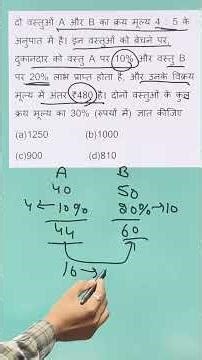 दो वस्तुओं A और B का क्रय मूल्य 4 : 5 के
अनुपात में है। इन वस्तुओं को बेचने पर,
दुकानदार को वस्तु A पर 10% और वस्तु B
पर 20% लाभ प्राप्त होता है, और उनके विक्रय
मूल्य में अंतर ₹480 है। दोनों वस्तुओं के कुल
क्रय मूल्य का 30% (रुपयों में) ज्ञात कीजिए
(a)1250 (b)1000
(c)900 (d)810
A B
40 50
4 ← 10% 20% → 10
44 60
16 →